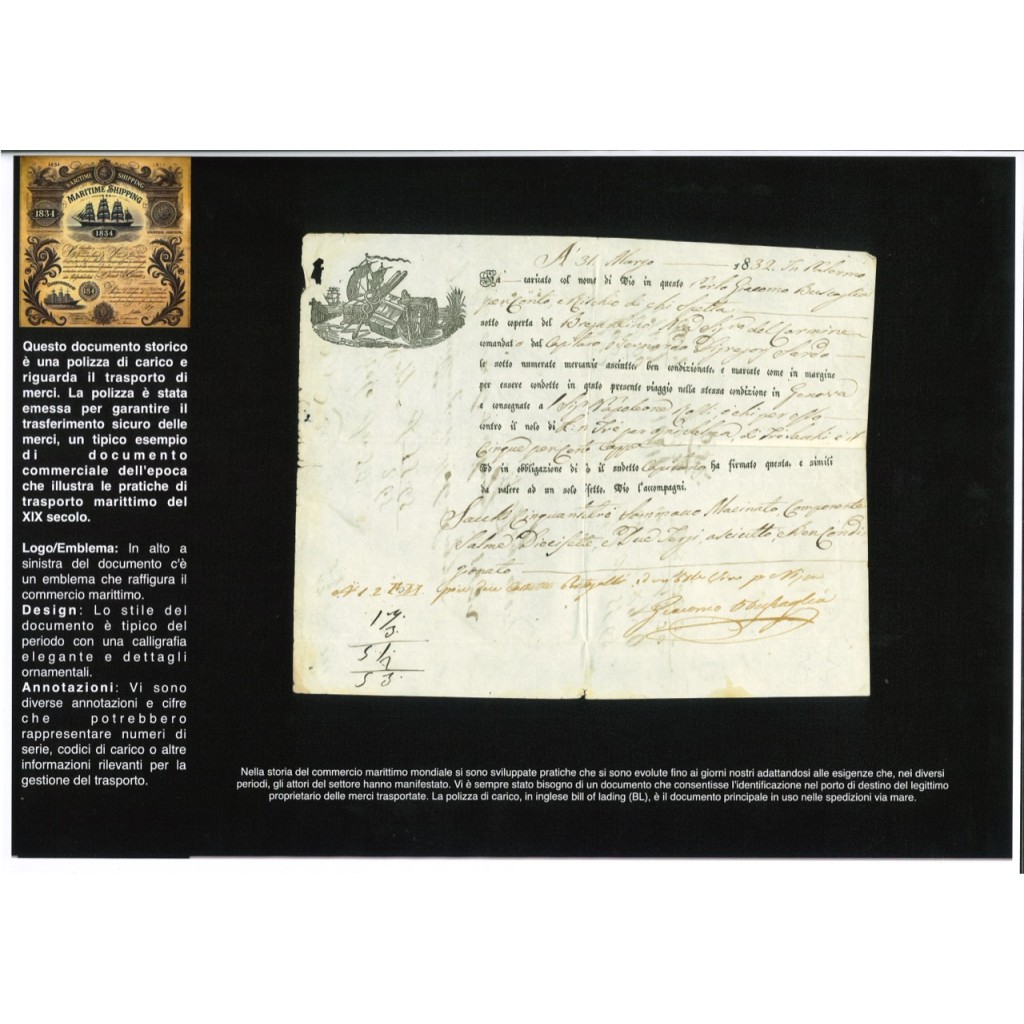 MARITIME SHIPPING
1834
1834
Questo documento storico
è una polizza di carico e
riguarda il trasporto di
merci. La polizza è stata
emessa per garantire il
trasferimento sicuro delle
merci, un tipico esempio
di documento
commerciale dell'epoca
che illustra le pratiche di
trasporto marittimo del
XIX secolo.
Logo/Emblema: In alto a
sinistra del documento c'è
un emblema che raffigura il
commercio marittimo.
Design: Lo stile del
documento è tipico del
periodo con una calligrafia
elegante e dettagli
ornamentali.
Annotazioni: Vi sono
diverse annotazioni e cifre
che potrebbero
rappresentare numeri di
serie, codici di carico o altre
informazioni rilevanti per la
gestione del trasporto.
A' 31 Marzo 1832. In Palermo
Ha caricato col nome di Dio in questo Porto Giacomo
per Conto, e Rischio di chi Spetta
sotto coperta del Brigantino del Carmine
comandato dal Capitano Sardo
le sotto numerate mercanzie asciutte, ben condizionate, e marcate come in margine
per essere condotte in questo presente viaggio nella stessa condizione in Genova
e consegnate a Napoleone
contro il nolo di
Cinque per Cento Cappa
Ed in obbligazione di ò il sudetto Capitano ha firmato questa, e simili
da valere ad un solo effetto. Dio l'accompagni.
Sacchi Cinquantatrè Sommacco Macinato, Componente
Salme Diecisette, e Due Terzi, asciutto, e ben Condi
zionato
Giacomo
17.
3.
51.
53.
Nella storia del commercio marittimo mondiale si sono sviluppate pratiche che si sono evolute fino ai giorni nostri adattandosi alle esigenze che, nei diversi
periodi, gli attori del settore hanno manifestato. Vi è sempre stato bisogno di un documento che consentisse l'identificazione nel porto di destino del legittimo
proprietario delle merci trasportate. La polizza di carico, in inglese bill of lading (BL), è il documento principale in uso nelle spedizioni via mare.